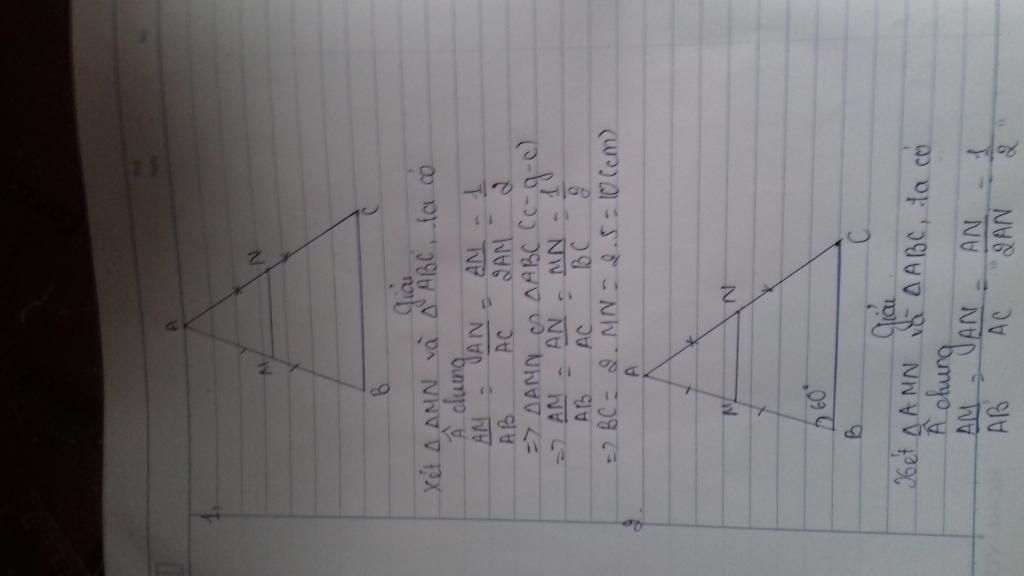 1,
A
M
N
B
C
Giải
Xét △AMN và △ABC, ta có
Â chung
AM/AB = AN/AC = AM/2AM = 1/2
=> △AMN ∽ △ABC (c-g-c)
=> AM/AB = AN/AC = MN/BC = 1/2
=> BC = 2. MN = 2.5 = 10 (cm)
2.
A
M
N
60°
B
C
Giải
Xét △AMN và △ABC, ta có
Â chung
AM/AB = AN/AC = AN/2AN = 1/2